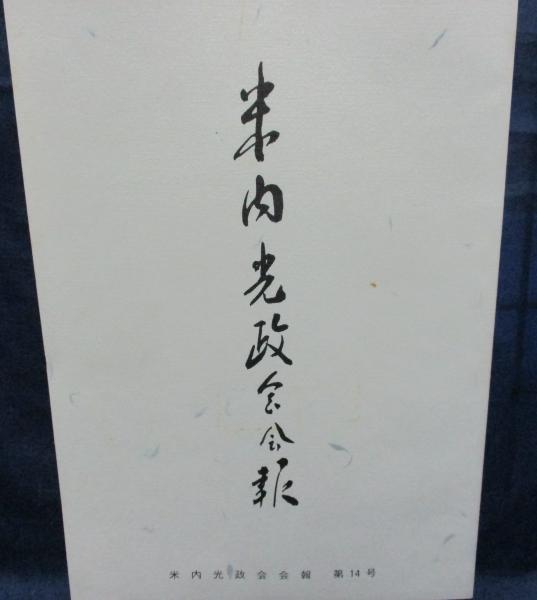 米内光政会会報
米内光政会会報 第14号